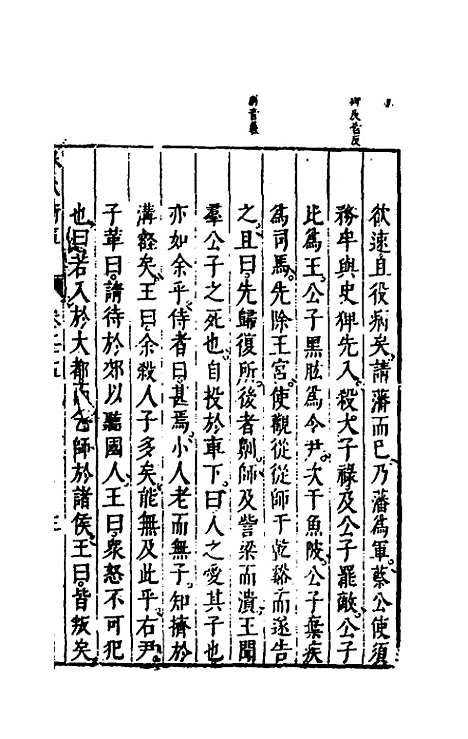 欲速且役病矣請藩而已乃藩爲軍蔡公使須
務牟與史猈先入殺大子祿及公子罷敵公子
比爲王公子黑肱爲令尹次于魚陂公子棄疾
爲司馬先除王宮使觀從從師于乾谿而遂告
之且曰先歸復所後者劓師及訾梁而潰王聞
羣公子之死也自投於車下曰人之愛其子也
亦如余乎侍者曰甚焉小人老而無子知擠於
溝壑矣王曰余殺人子多矣能無及此乎右尹
子革曰請待於郊以聽國人王曰衆怒不可犯
也曰若入於大都而乞師於諸侯王曰皆叛矣